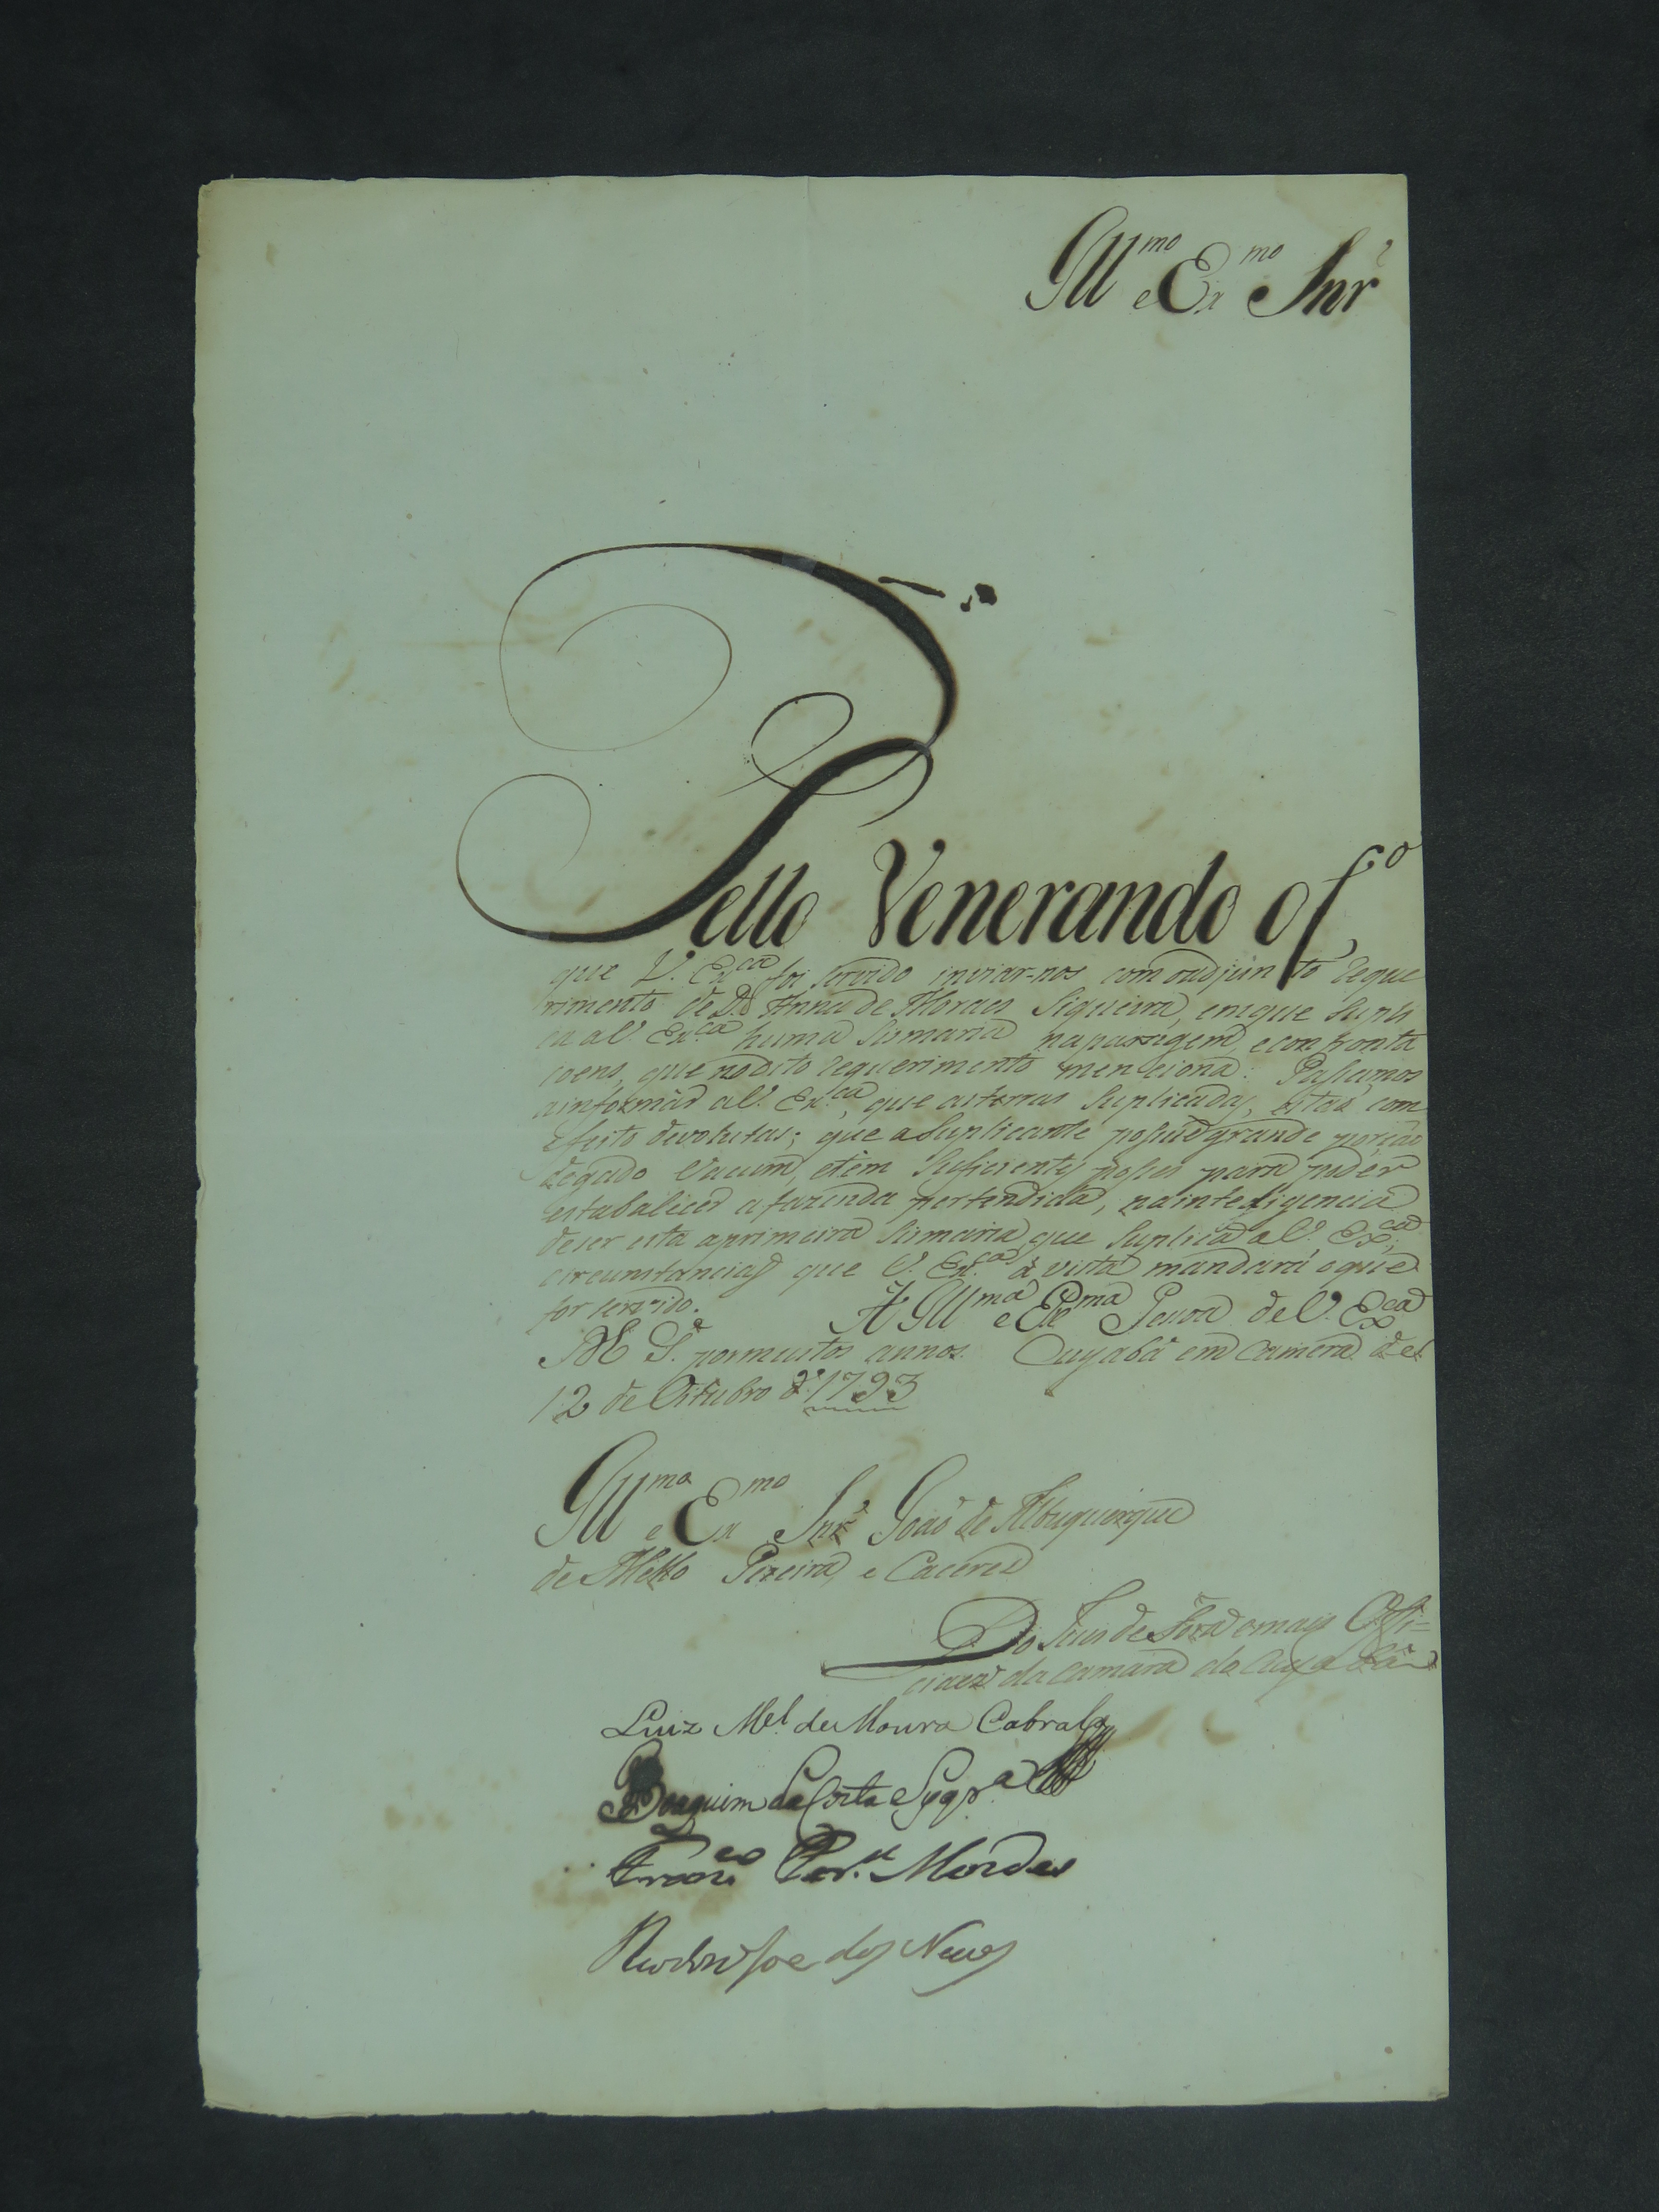 Ill.mo e Ex.mo Snr'
Pello Venerando of.co
que V. Ex.ca foi servido inviar-nos com oadjunto Reque
rimento de D. Anna de Moraes Siqueira, emque Supli
ca aV. Ex.ca huma Sismaria napassagem econfronta
coens, que nodito requerimento menciona: Passamos
ainformar aV. Ex.ca, que asterras Suplicadas, estaõ com
efeito devolutas; que aSuplicante possue grande porçaõ
degado Vacum, etem Suficientes posses para poder
estabalecer afazenda pertendida, naintelligencia
deser esta aprimeira Sismaria que Suplica aV. Ex.ca,
circunstancias que V. Ex.ca á vista mandará oque
for servido. A Ill.ma e Ex.ma Pessoa deV. Ex.ca
G. pormuitos annos. Cuyabá em Camera de
12 de Oitubro d' 1793
Ill.mo e Ex.mo Snr' Joaõ de Albuquerque
de Mello Pereira, e Caceres
Do Juis de Fora emais Offi=
ciaes da Camara do Cuyabá
Luiz M.el de Moura Cabral
Joaquim da Costa e Syqr.a
Fran.co Per.a Mendes
Joe dos Neves